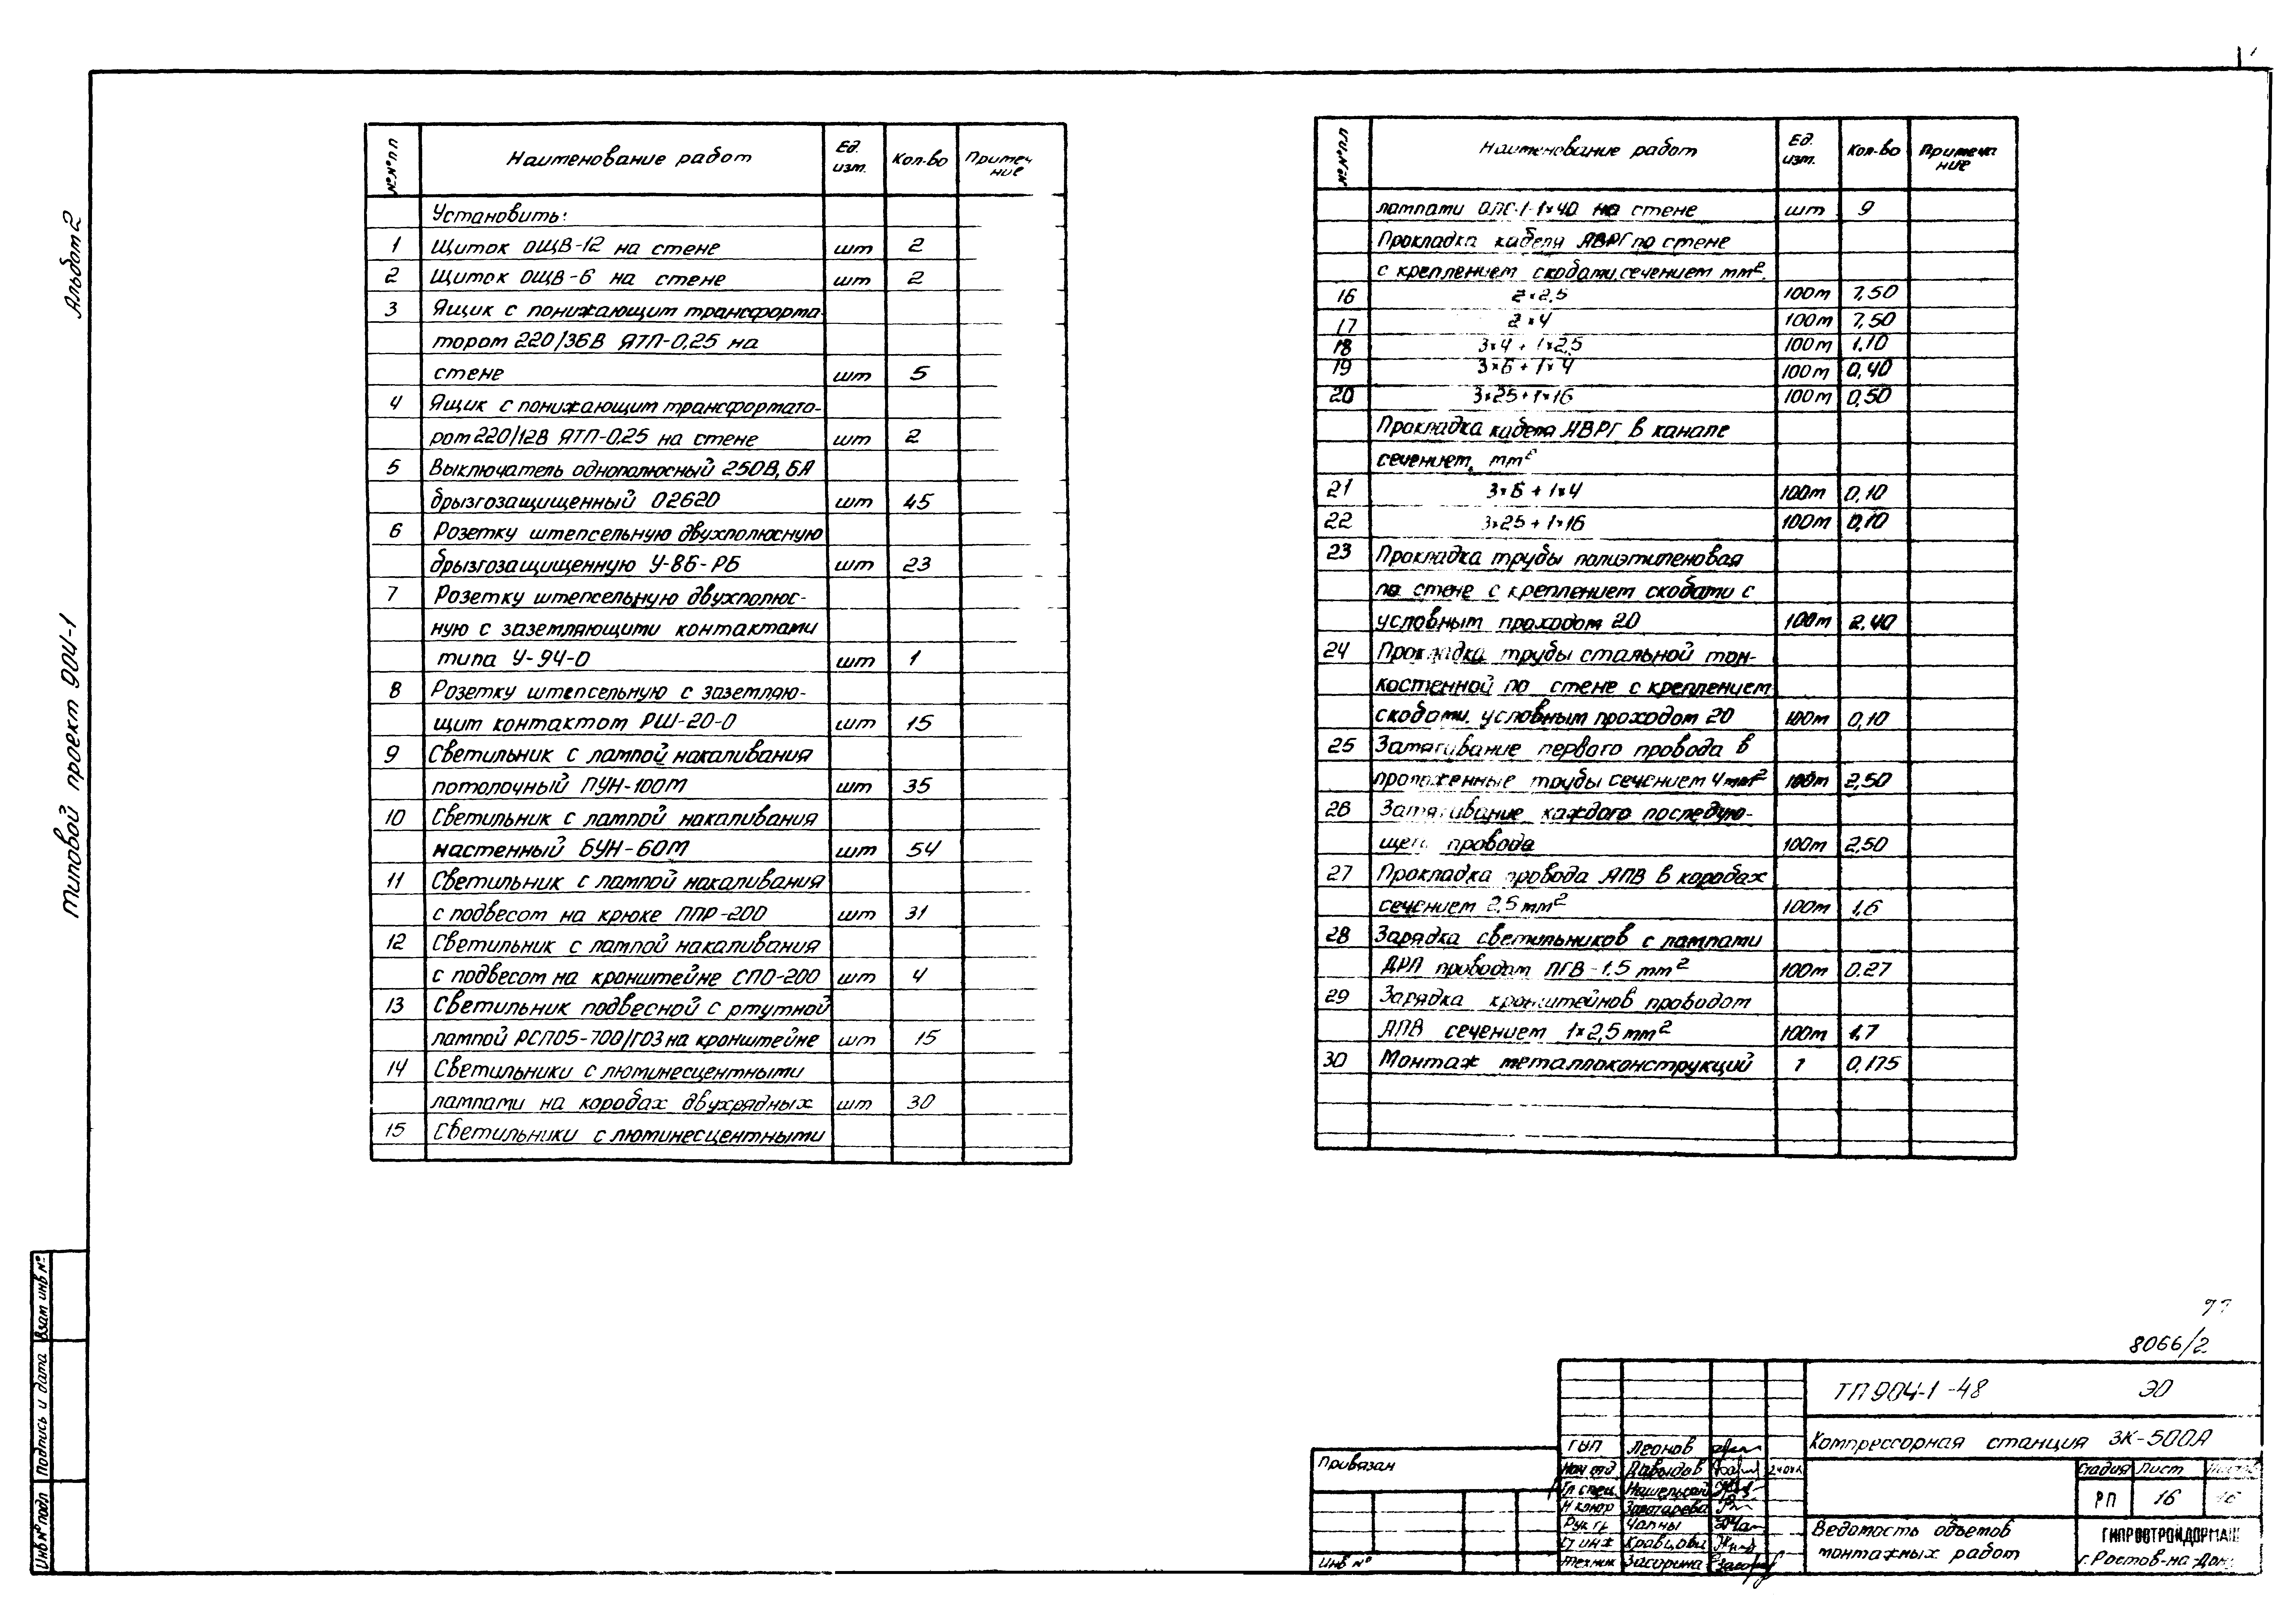 Альбом 2
Типовой проект 904-1
№№ пп Наименование работ Ед. изм. Кол-во Примеч ние
Установить:
1 Щиток ОЩВ-12 на стене шт 2
2 Щиток ОЩВ-6 на стене шт 2
3 Ящик с понижающим трансформа-
тором 220/36В ЯТП-0,25 на
стене шт 5
4 Ящик с понижающим трансформато-
ром 220/12В ЯТП-0,25 на стене шт 2
5 Выключатель однополюсный 250В, 6А
брызгозащищенный 02620 шт 45
6 Розетку штепсельную двухполюсную
брызгозащищенную У-86-РБ шт 23
7 Розетку штепсельную двухполюс-
ную с заземляющими контактами
типа У-94-О шт 1
8 Розетку штепсельную с заземляю-
щим контактом РШ-20-0 шт 15
9 Светильник с лампой накаливания
потолочный ПУН-100М шт 35
10 Светильник с лампой накаливания
настенный БУН-60М шт 54
11 Светильник с лампой накаливания
с подвесом на крюке ППР-200 шт 31
12 Светильник с лампой накаливания
с подвесом на кронштейне СПО-200 шт 4
13 Светильник подвесной с ртутной
лампой РСП05-700/Г03 на кронштейне шт 15
14 Светильники с люминесцентными
лампами на коробах двухрядных шт 30
15 Светильники с люминесцентными
№№ пп Наименование работ Ед. изм. Кол-во Примеча ние
лампами ОЛС-1-1×40 на стене шт 9
Прокладка кабеля АВРГ по стене
с креплением скобами, сечением мм².
16 2×2,5 100м 7,50
17 2×4 100м 7,50
18 3×4 + 1×2,5 100м 1,10
19 3×6 + 1×4 100м 0,40
20 3×25 + 1×16 100м 0,50
Прокладка кабеля АВРГ в канале
сечением, мм²
21 3×6 + 1×4 100м 0,10
22 3×25 + 1×16 100м 0,10
23 Прокладка трубы полиэтиленовая
по стене с креплением скобами с
условным проходом 20 100м 2,40
24 Прокладка трубы стальной тон-
костенной по стене с креплением
скобами, условным проходом 20 100м 0,10
25 Затягивание первого провода в
проложенные трубы сечением 4 мм² 100м 2,50
26 Затягивание каждого последую-
щего провода 100м 2,50
27 Прокладка провода АПВ в коробах
сечением 2,5 мм² 100м 1,6
28 Зарядка светильников с лампами
ДРЛ проводом ПГВ-1.5 мм² 100м 0.27
29 Зарядка кронштейнов проводом
АПВ сечением 1×2,5 мм² 100м 1,7
30 Монтаж металлоконструкций т 0,175
8066/2
ТП 904-1-48 ЭО
Компрессорная станция 3К-500А
Стадия Лист
РП 16 16
Ведомость объемов
монтажных работ
ГИПРОСТРОЙДОРМАШ
г. Ростов-на-Дону
ГИП Леонов
Нач отд Давыдов
Гл спец.
Н контр Золотарева
Рук гр Чапны
Ст инж
Техник Засорина
Привязан
Инв №
Взам инв №
Подпись и дата
Инв № подл